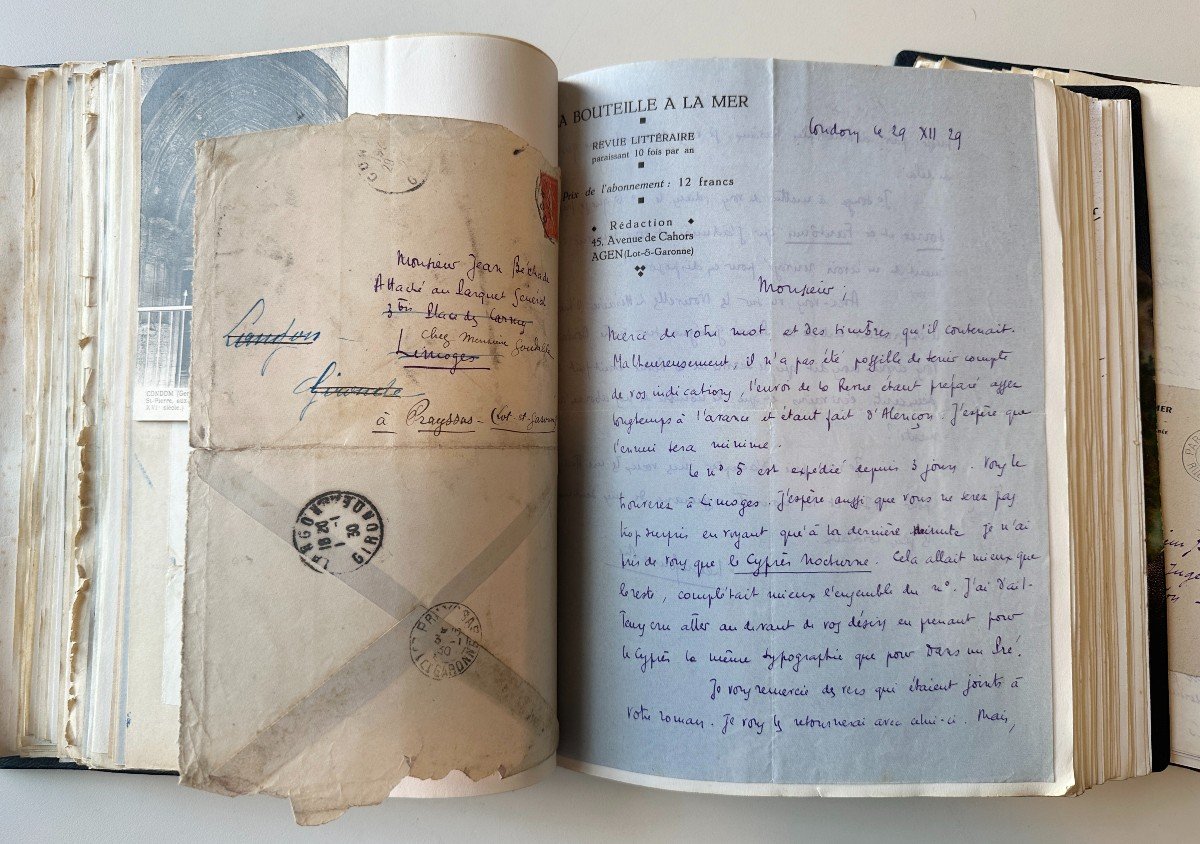 CONDOM (Ger
St-Pierre,
XVIe siècle.)
Monsieur Jean
Attaché au Parquet Général
3 bis Place des Carmes
chez Monsieur
Limoges
Langon
Gironde
à Prayssas - (Lot-et-Garonne)
LANGON GIRONDE
18 20
1 - 1
30
PRAYSSAS
LOT-ET-GARONNE
A BOUTEILLE A LA MER
REVUE LITTÉRAIRE
paraissant 10 fois par an
Prix de l'abonnement : 12 francs
Rédaction
45, Avenue de Cahors
AGEN (Lot-&-Garonne)
Condom le 29 XII 29
Monsieur,
Merci de votre mot et des timbres qu'il contenait.
Malheureusement, il n'a pas été possible de tenir compte
de vos indications, l'envoi de la Revue étant préparé assez
longtemps à l'avance et étant fait d'Alençon. J'espère que
l'ennui sera minime.
Le n° 5 est expédié depuis 3 jours. Vous le
trouverez à Limoges. J'espère aussi que vous ne serez pas
trop surpris en voyant qu'à la dernière minute je n'ai
mis de vous que le Cyprès Nocturne. Cela allait mieux que
le reste, complétait mieux l'ensemble du n°. J'ai d'ail-
leurs cru aller au devant de vos désirs en prenant pour
le Cyprès la même typographie que pour Dans un Pré.
Je vous remercie des vers qui étaient joints à
votre roman. Je vous les retournerai avec celui-ci. Mais,